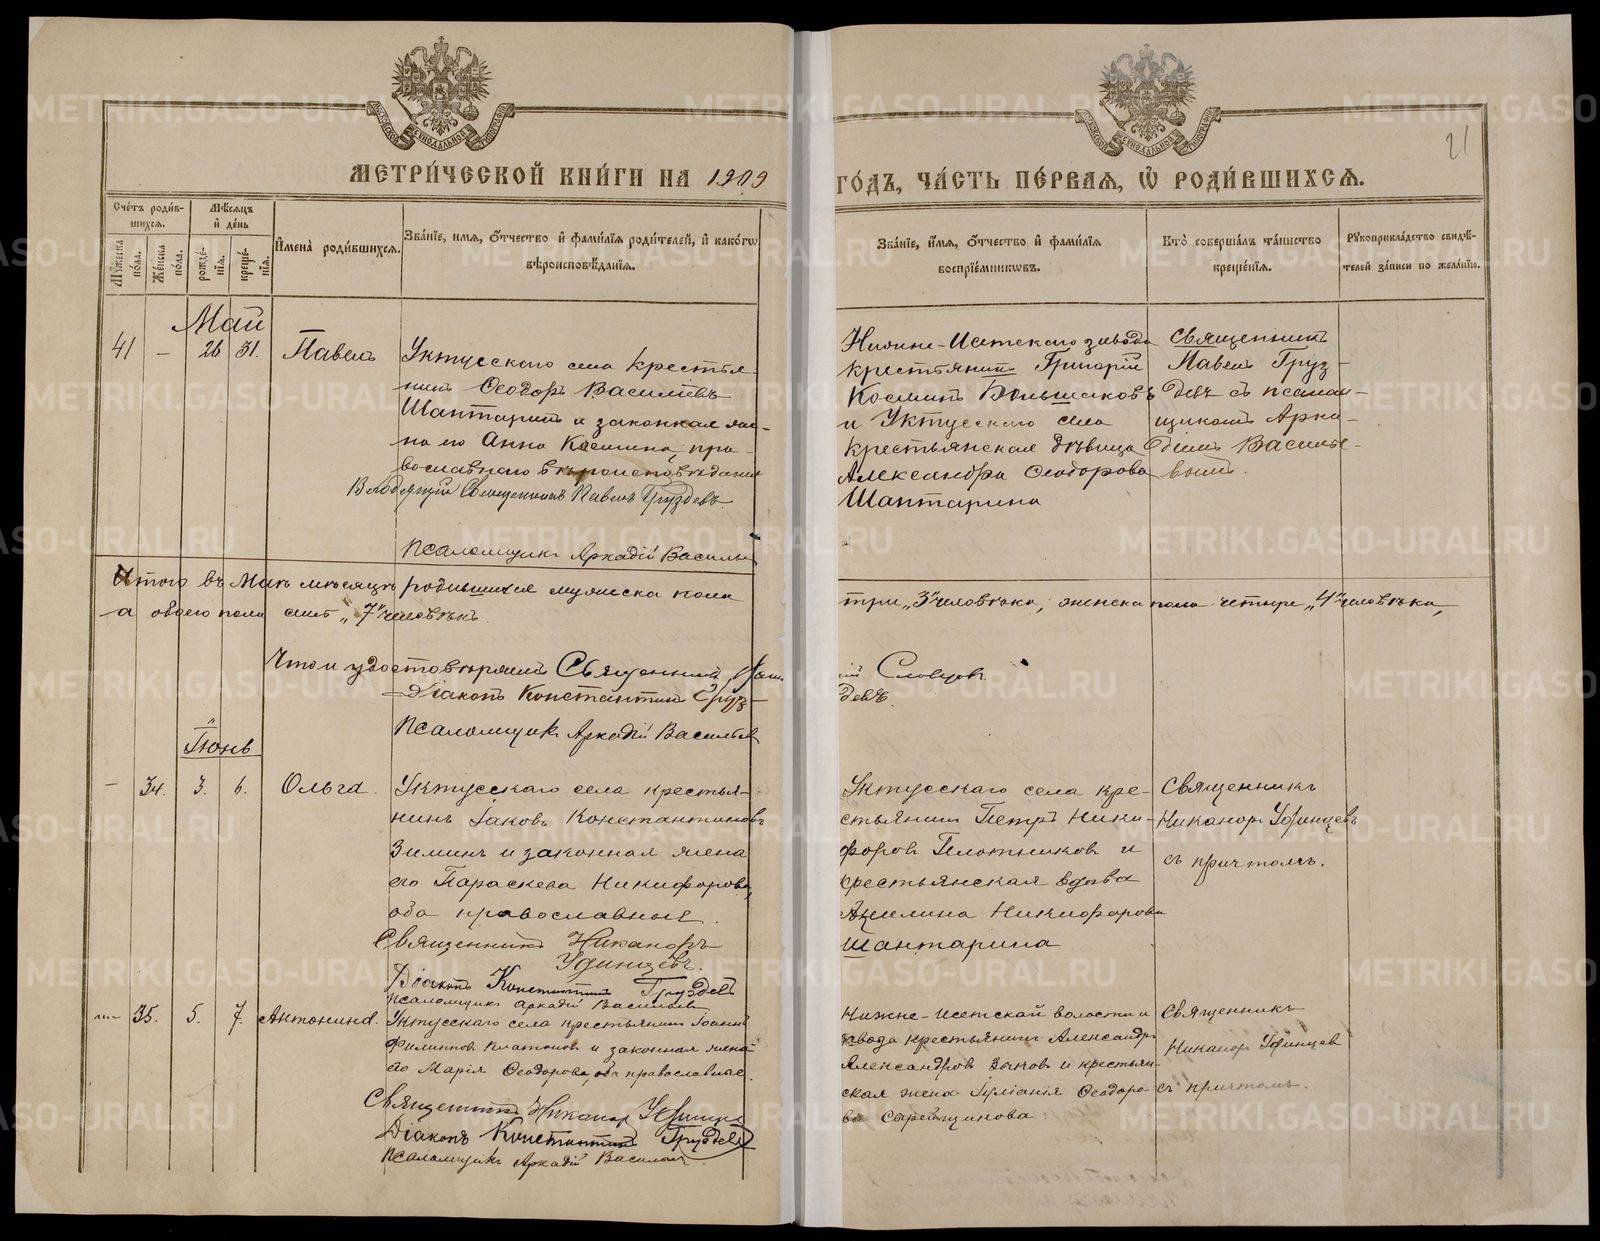 МЕТРИ́ЧЕСКОЙ КНИ́ГИ НА 1909
ГО́ДЪ, ЧА́СТЬ ПЕ́РВАЯ, Ѡ҆ РОДИ́ВШИХСЯ.
21
Сче́тъ роди́в-
шихся.
Мѣ́сяцъ
и҆ де́нь
Му́жеска
по́ла.
Же́нска
по́ла.
рожде́-
нїя.
креще́-
нїя.
И҆мена̀ роди́вшихся.
Зва́нїе, и҆мя, ѻ҆́тчество и҆ фами́лїя роди́телей, и҆ како́гѡ
вѣроисповѣ́данїя.
Зва́нїе, и҆́мя, ѻ҆́тчество и҆ фами́лїя
воспрїе́мникѡвъ.
Кто̀ соверша́лъ та́инство
креще́нїя.
Рꙋкоприкла́дство свидѣ́-
телей за́писи по жела́нїю.
Май
41 — 26 31. Павелъ
Уктусскаго села крестья-
нинъ Ѳеодоръ Васильевъ
Шантаринъ и законная же-
на его Анна Косьмина, пра-
вославнаго вѣроисповѣданія
Священникъ Павелъ Груздевъ.
Псаломщикъ Аркадій Василье
Нижне-Исетскаго завода
крестьянинъ Григорій
Косминъ Большаковъ
и Уктусскаго села
крестьянская дѣвица
Александра Ѳеодорова
Шантарина
Священникъ
Павелъ Груз-
девъ съ псалом-
щикомъ Арка-
діемъ Василье-
вымъ.
Итого въ Маѣ мѣсяцѣ родившихся мужеска пола
три „3" человѣка, женска пола четыре „4" человѣка,
а обоего пола семь „7" человѣкъ.
Что и удостовѣряемъ Священникъ
ій Словцовъ
Діаконъ Константинъ Груз-
девъ.
Псаломщикъ Аркадій Васильев
Іюнь
— 34. 3. 6. Ольга.
Уктусскаго села крестья-
нинъ Іаковъ Константиновъ
Зиминъ и законная жена
его Параскева Никифорова,
оба православные.
Священникъ Никаноръ
Удинцевъ.
Діаконъ Константинъ Груздевъ
Псаломщикъ Аркадій Васильев
Уктусскаго села кре-
стьянинъ Петръ Ники-
форовъ Плотниковъ и
крестьянская вдова
Акилина Никифорова
Шантарина
Священникъ
Никаноръ Удинцевъ
съ причтомъ.
— 35. 5. 7. Антонина.
Уктусскаго села крестьянинъ Іоаннъ
Филипповъ Платоновъ и законная жена
его Марія Ѳеодорова, оба православные.
Священникъ Никаноръ Удинцев
Діаконъ Константинъ Груздевъ
Псаломщикъ Аркадій Васильев
Нижне-Исетской волости и
завода крестьянинъ Александръ
Александровъ Зыковъ и крестьян-
ская жена Іуліанія Ѳеодоро-
ва Сырейщикова
Священникъ
Никаноръ Удинцев
съ причтомъ.
METRIKI.GASO-URAL.RU